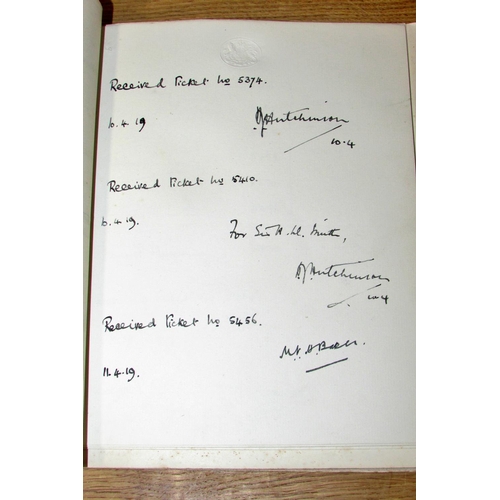 Received Ticket No 5374.
10.4.19
Hutchinson
10.4
Received Ticket No 5410.
10.4.19.
For Sir H. Ll. Smith,
Hutchinson
10.4
Received Ticket No 5456.
11.4.19.